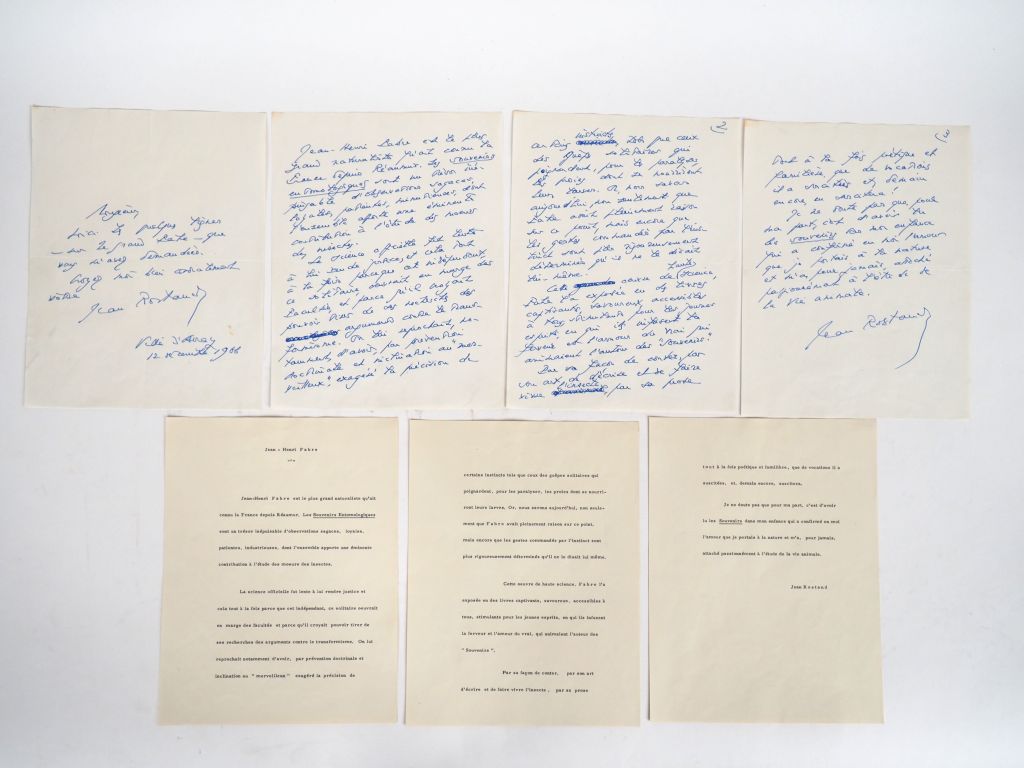 Monsieur,
Voici les quelques lignes
sur le grand Fabre – que
vous m'avez demandées.
Croyez moi bien cordialement
vôtre
Jean Rostand
Ville d'Avray
12 décembre 1966
Jean-Henri Fabre est le plus
grand naturaliste qu'ait connu la
France depuis Réaumur. Les Souvenirs
entomologiques sont un trésor iné-
puisable d'observations sagaces,
loyales, patientes, industrieuses, dont
l'ensemble apporte une éminente
contribution à l'étude des moeurs
des insectes.
La science officielle fut lente
à lui rendre justice, et cela tout
à la fois parce que cet indépendant,
ce solitaire oeuvrait en marge des
Facultés et parce qu'il croyait
pouvoir tirer de ses recherches des
arguments contre le trans-
formisme. On lui reprochait, no-
tamment, d'avoir, par prévention
doctrinale et inclination au "mer-
veilleux", exagéré la précision de
2
certains instincts tels que ceux
des guêpes solitaires qui
poignardent, pour les paralyser,
les proies dont se nourriront
leurs larves. Or, nous savons
aujourd'hui, non seulement que
Fabre avait pleinement raison
sur ce point, mais encore que
les gestes commandés par l'ins-
tinct sont plus rigoureusement
déterminés qu'il ne le disait
lui-même.
Cette oeuvre de haute science,
Fabre l'a exposée en des livres
captivants, savoureux, accessibles
à tous, stimulants pour les jeunes
esprits, en qui ils infusent la
ferveur et l'amour du vrai qui
animaient l'auteur des "Souvenirs".
Par sa façon de conter, par
son art de décrire et de faire
vivre l'insecte, par sa prose
3
tout à la fois poétique et
familière, que de vocations
il a suscitées et, demain
encore, suscitera !
Je ne doute pas que, pour
ma part, c'est d'avoir lu
les Souvenirs dans mon enfance
qui a confirmé en moi l'amour
que je portais à la nature
et m'a, pour jamais, attaché
passionnément à l'étude de
la vie animale.
Jean Rostand
Jean - Henri Fabre
Jean-Henri Fabre est le plus grand naturaliste qu'ait
connu la France depuis Réaumur. Les Souvenirs Entomologiques
sont un trésor inépuisable d'observations sagaces, loyales,
patientes, industrieuses, dont l'ensemble apporte une éminente
contribution à l'étude des moeurs des insectes.
La science officielle fut lente à lui rendre justice et
cela tout à la fois parce que cet indépendant, ce solitaire oeuvrait
en marge des facultés et parce qu'il croyait pouvoir tirer de
ses recherches des arguments contre le transformisme. On lui
reprochait notamment d'avoir, par prévention doctrinale et
inclination au " merveilleux " exagéré la précision de
certains instincts tels que ceux des guêpes solitaires qui
poignardent, pour les paralyser, les proies dont se nourri-
ront leurs larves. Or, nous savons aujourd'hui, non seule-
ment que Fabre avait pleinement raison sur ce point,
mais encore que les gestes commandés par l'instinct sont
plus rigoureusement déterminés qu'il ne le disait lui même.
Cette oeuvre de haute science, Fabre l'a
exposée en des livres captivants, savoureux, accessibles à
tous, stimulants pour les jeunes esprits, en qui ils infusent
la ferveur et l'amour du vrai, qui animaient l'auteur des
" Souvenirs ".
Par sa façon de conter, par son art
d'écrire et de faire vivre l'insecte, par sa prose
tout à la fois poétique et familière, que de vocations il a
suscitées, et, demain encore, suscitera.
Je ne doute pas que pour ma part, c'est d'avoir
lu les Souvenirs dans mon enfance qui a confirmé en moi
l'amour que je portais à la nature et m'a, pour jamais,
attaché passionnément à l'étude de la vie animale.
Jean Rostand